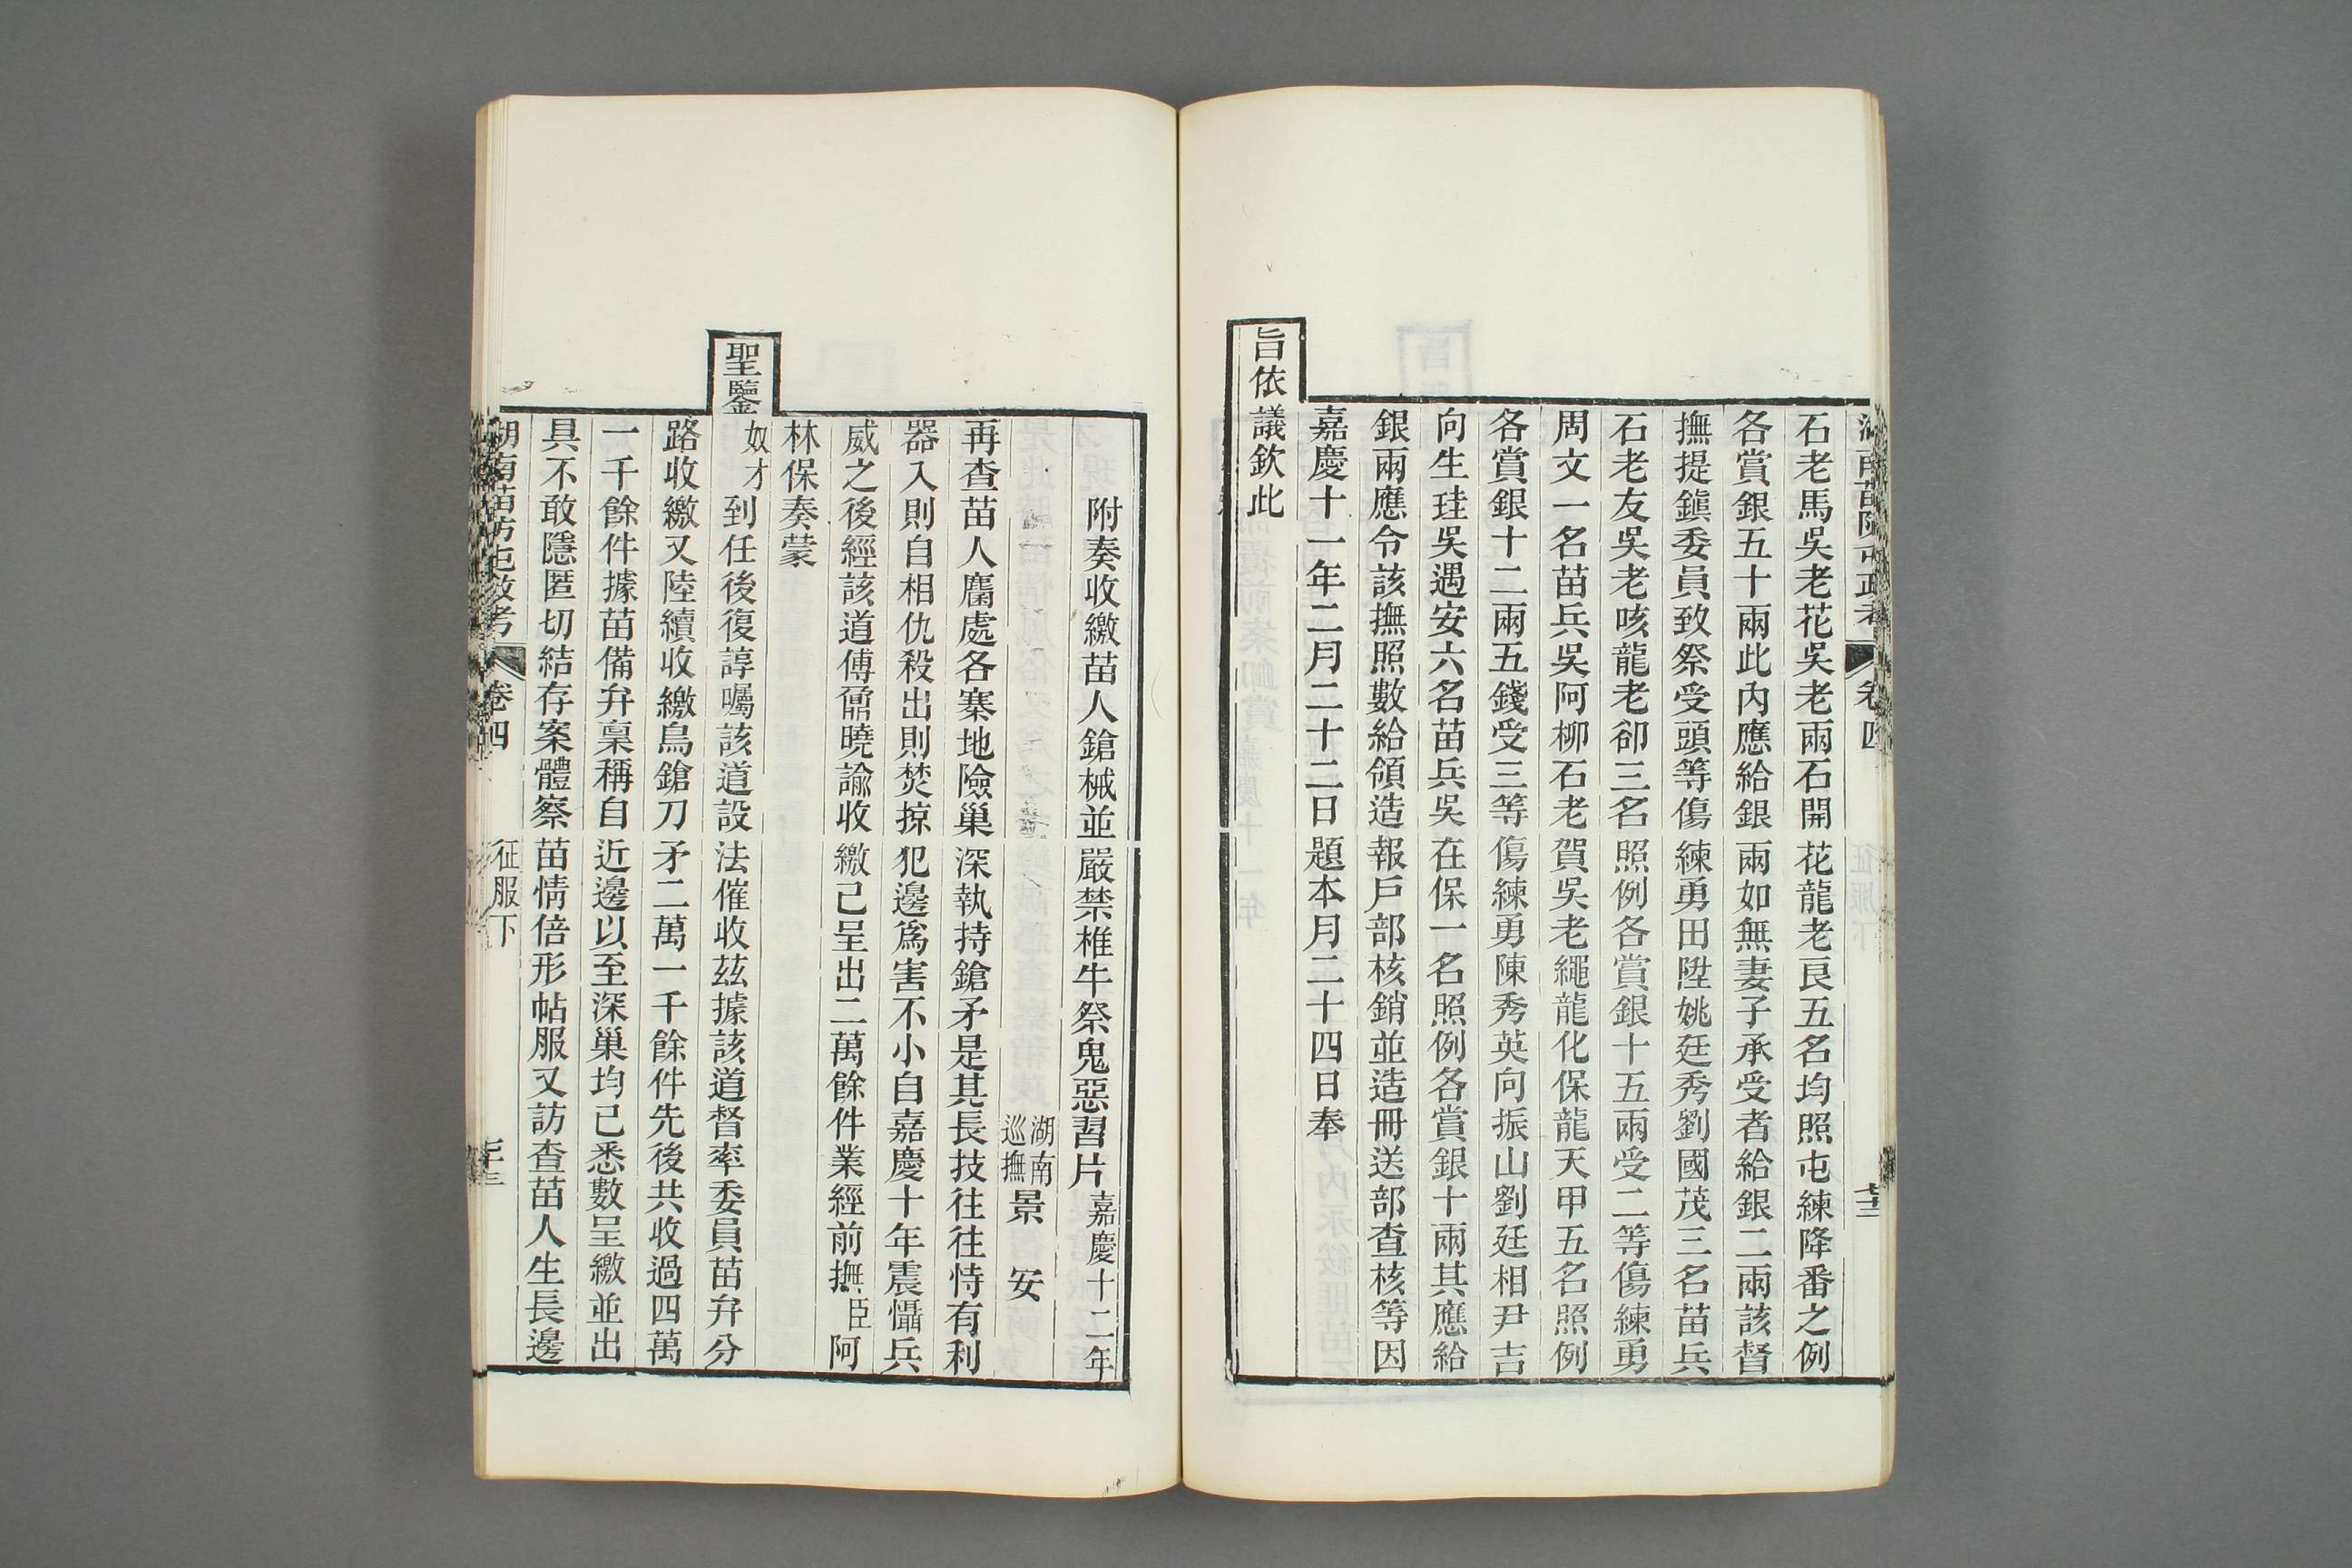 湖南苗防屯政考 卷四 征服下
石老馬吳老花吳老兩石開花龍老㒹五名均照屯練降番之例
各賞銀五十兩此內應給銀兩如無妻子承受者給銀二兩該督
撫提鎭委員致祭受頭等傷練勇田陞姚廷秀劉國茂三名苗兵
石老友吳老咳龍老卻三名照例各賞銀十五兩受二等傷練勇
周文一名苗兵吳阿柳石老賀吳老繩龍化保龍天甲五名照例
各賞銀十二兩五錢受三等傷練勇陳秀英向振山劉廷相尹吉
向生珪吳遇安六名苗兵吳在保一名照例各賞銀十兩其應給
銀兩應令該撫照數給領造報戶部核銷並造冊送部查核等因
嘉慶十一年二月二十二日題本月二十四日奉
旨依議欽此
附奏收繳苗人鎗械並嚴禁椎牛祭鬼惡習片嘉慶十二年
湖南巡撫景安
再查苗人麕處各寨地險巢深執持鎗矛是其長技往往恃有利
器入則自相仇殺出則焚掠犯邊爲害不小自嘉慶十年震懾兵
威之後經該道傅鼐曉諭收繳已呈出二萬餘件業經前撫臣阿
林保奏蒙
聖鑒奴才到任後復諄囑該道設法催收茲據該道督率委員苗弁分
路收繳又陸續收繳鳥鎗刀矛二萬一千餘件先後共收過四萬
一千餘件據苗備弁稟稱自近邊以至深巢均已悉數呈繳並出
具不敢隱匿切結存案體察苗情倍形帖服又訪查苗人生長邊
湖南苗防屯政考 卷四 征服下